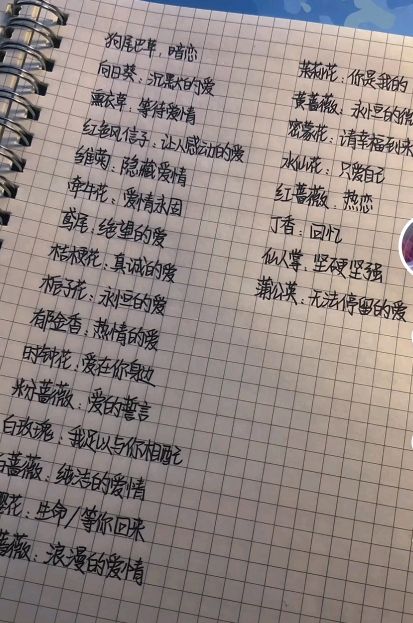 狗尾巴草：暗恋
向日葵：沉默的爱
薰衣草：等待爱情
红色风信子：让人感动的爱
雏菊：隐藏爱情
牵牛花：爱情永固
鸢尾：绝望的爱
桔梗花：真诚的爱
栀子花：永恒的爱
郁金香：热情的爱
时钟花：爱在你身边
粉蔷薇：爱的誓言
白玫瑰：我足以与你相配
白蔷薇：纯洁的爱情
樱花：生命/等你回来
蔷薇：浪漫的爱情
茉莉花：你是我的
黄蔷薇：永恒的微
密蒙花：请幸福到来
水仙花：只爱自己
红蔷薇：热恋
丁香：回忆
仙人掌：坚硬坚强
蒲公英：无法停留的爱